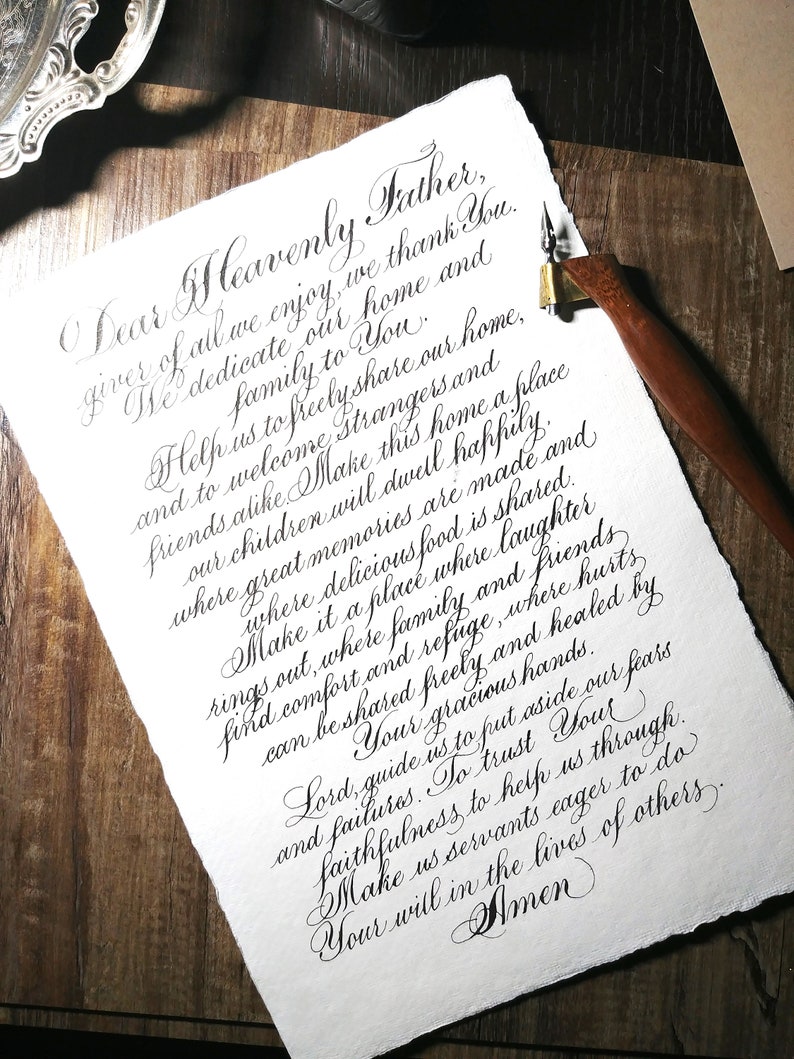 Dear Heavenly Father,
giver of all we enjoy, we thank You.
We dedicate our home and
family to You.
Help us to freely share our home,
and to welcome strangers and
friends alike. Make this home a place
our children will dwell happily,
where great memories are made and
where delicious food is shared.
Make it a place where laughter
rings out, where family and friends
find comfort and refuge, where hurts
can be shared freely and healed by
Your gracious hands.
Lord, guide us to put aside our fears
and failures. To trust Your
faithfulness to help us through.
Make us servants eager to do
Your will in the lives of others.
Amen